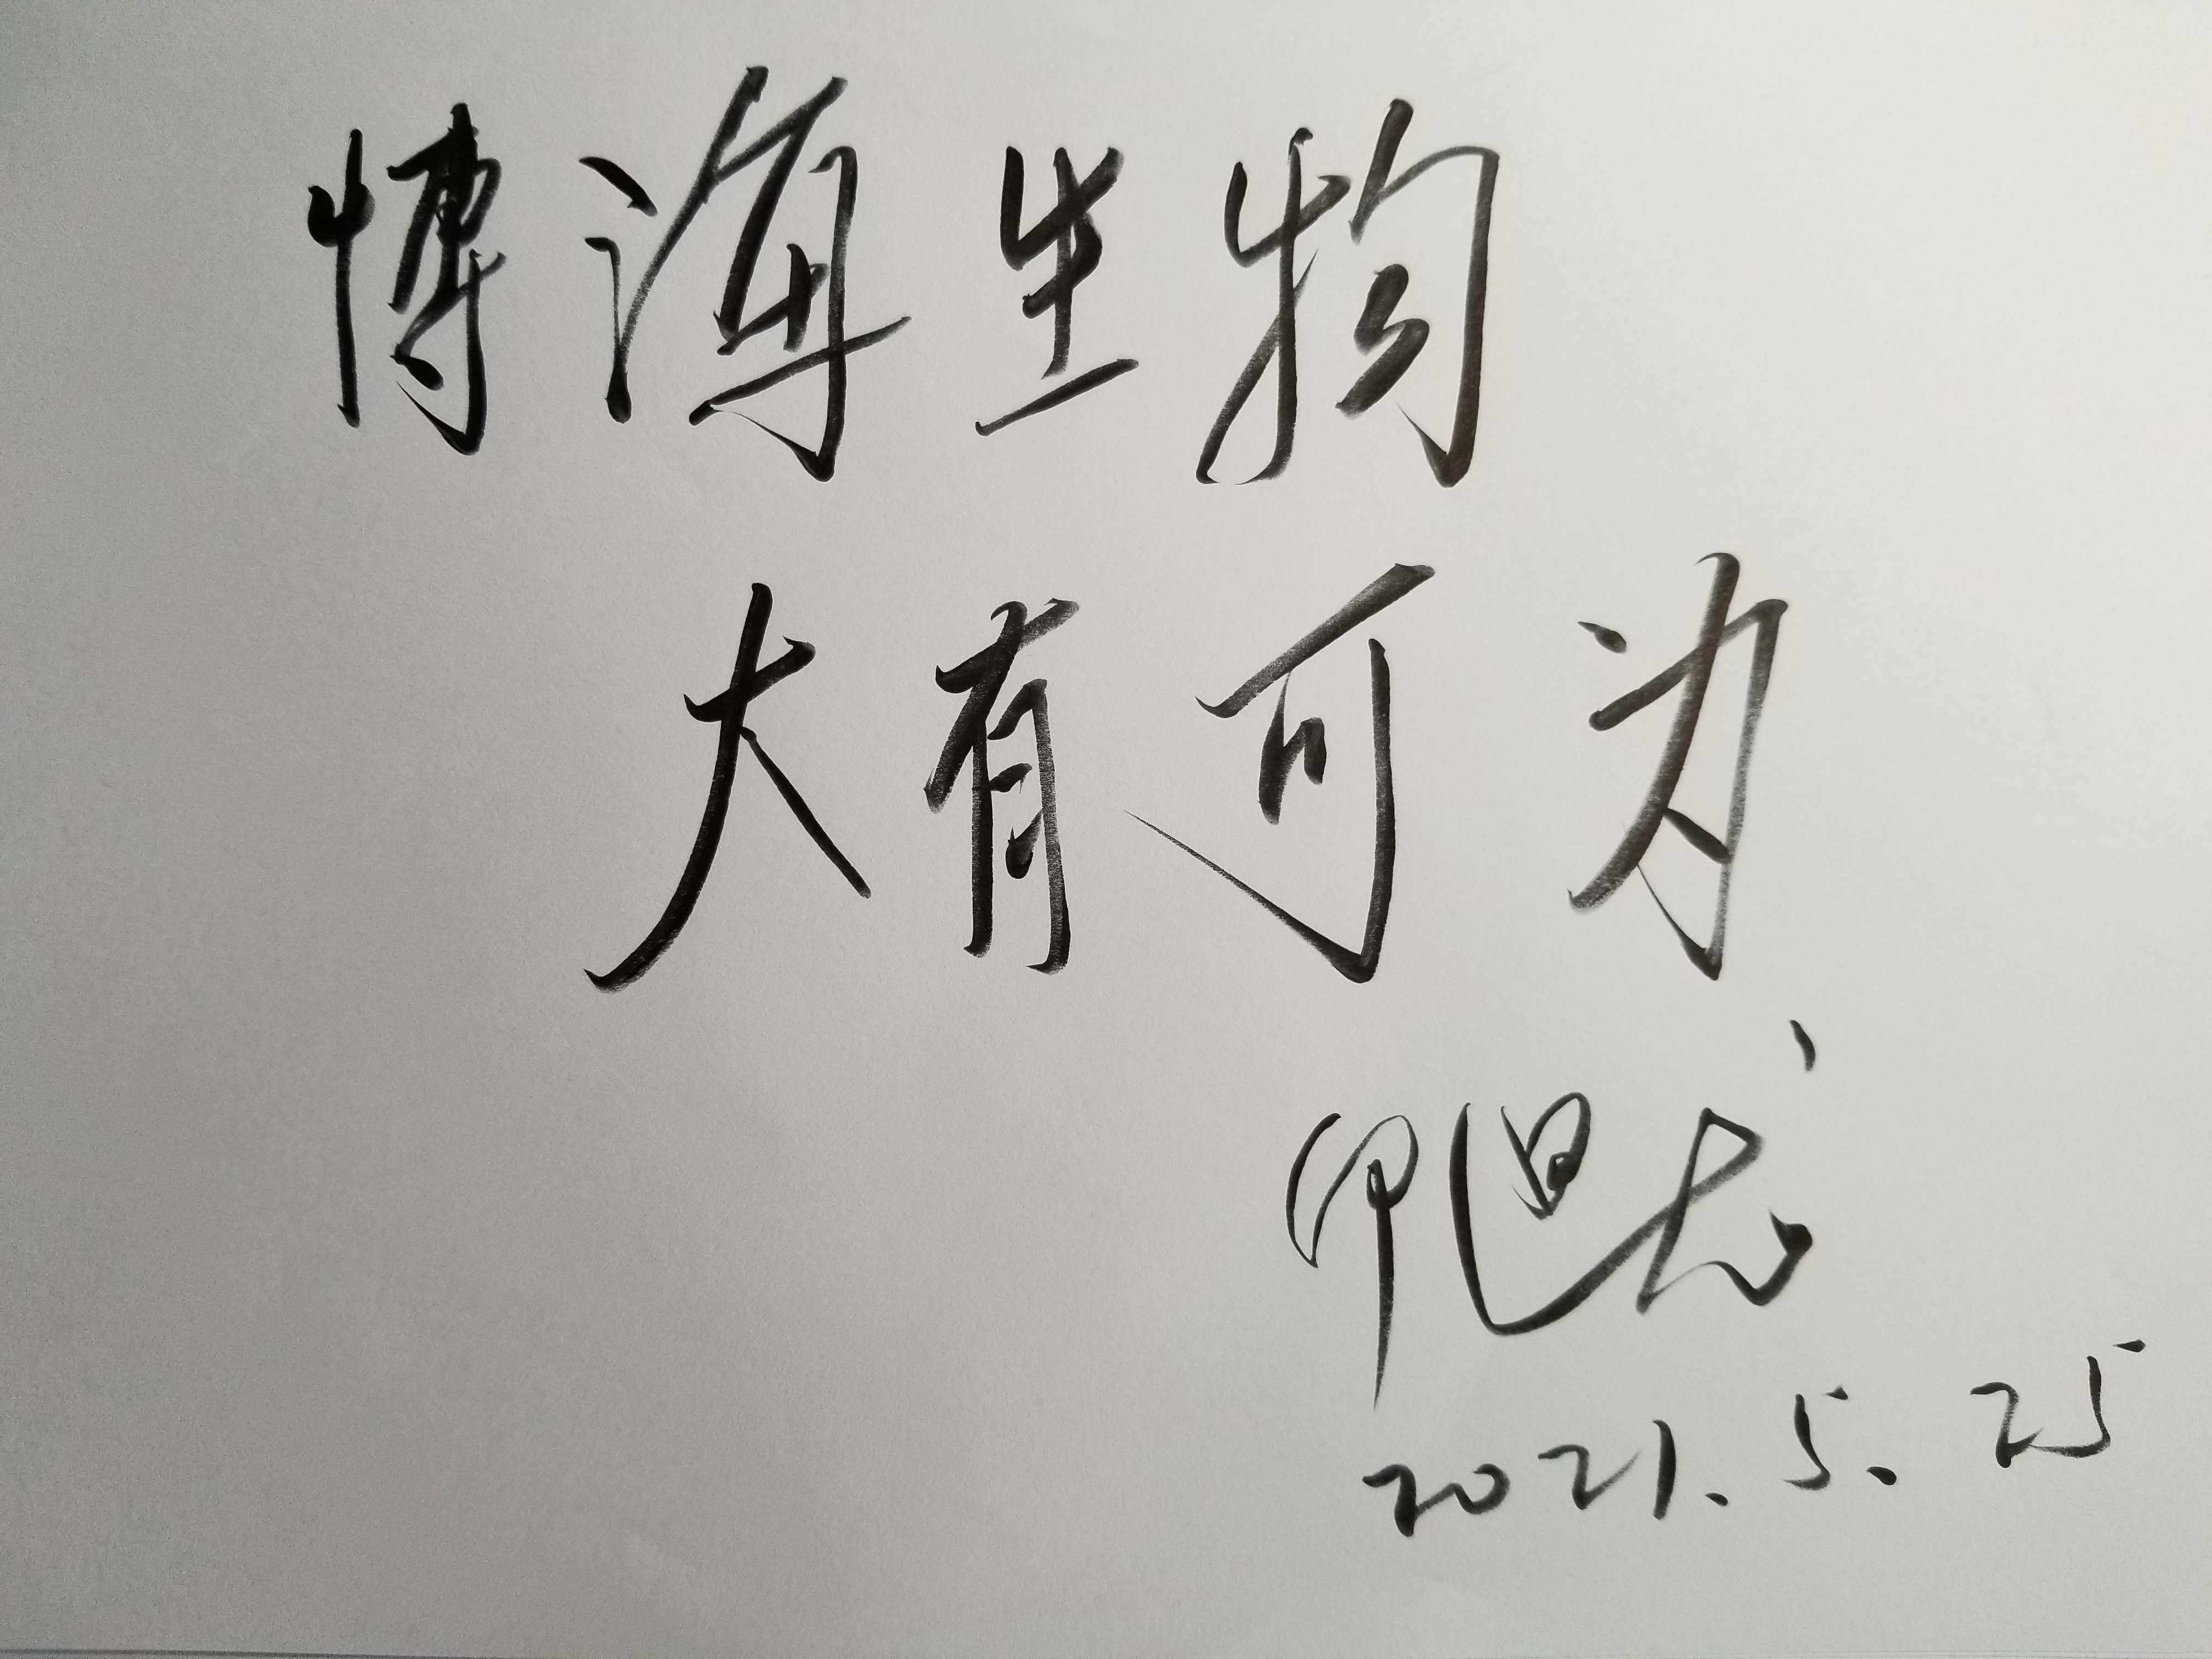 博海生物
大有可为
2021.5.25